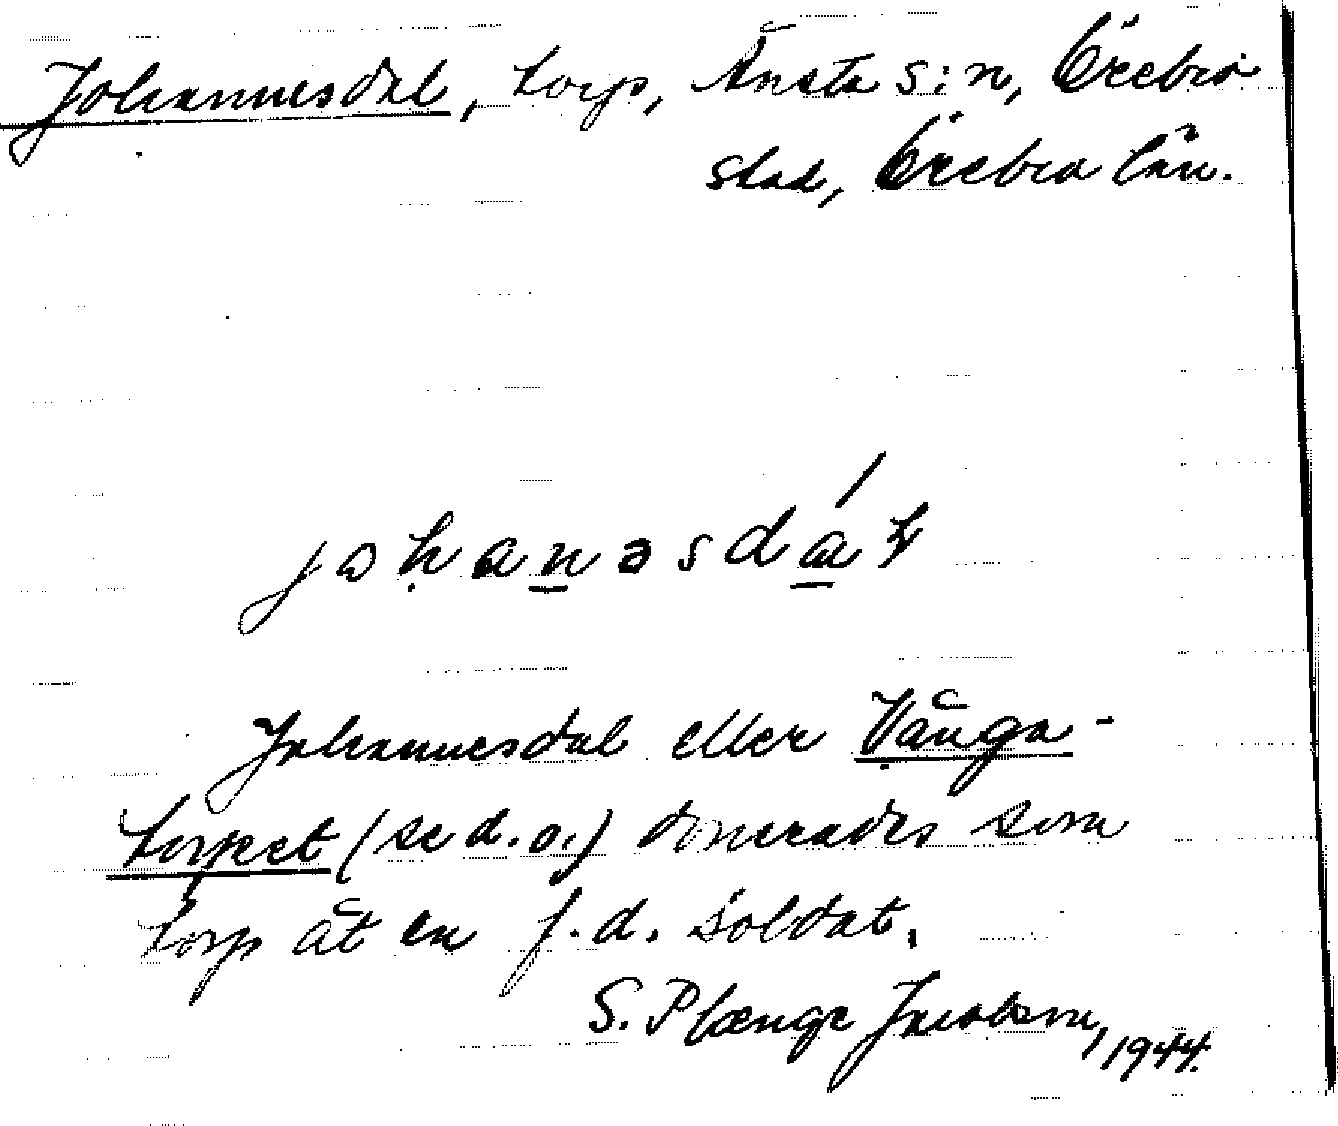 Johannesdal, torp, Ånsta s:n, Örebro
stad, Örebro län.
johanəsdál
Johannesdal eller Vånga-
torpet (se d.o.) donerades som
torp åt en f.d. soldat.
S. Plænge Jacobson, 1944.